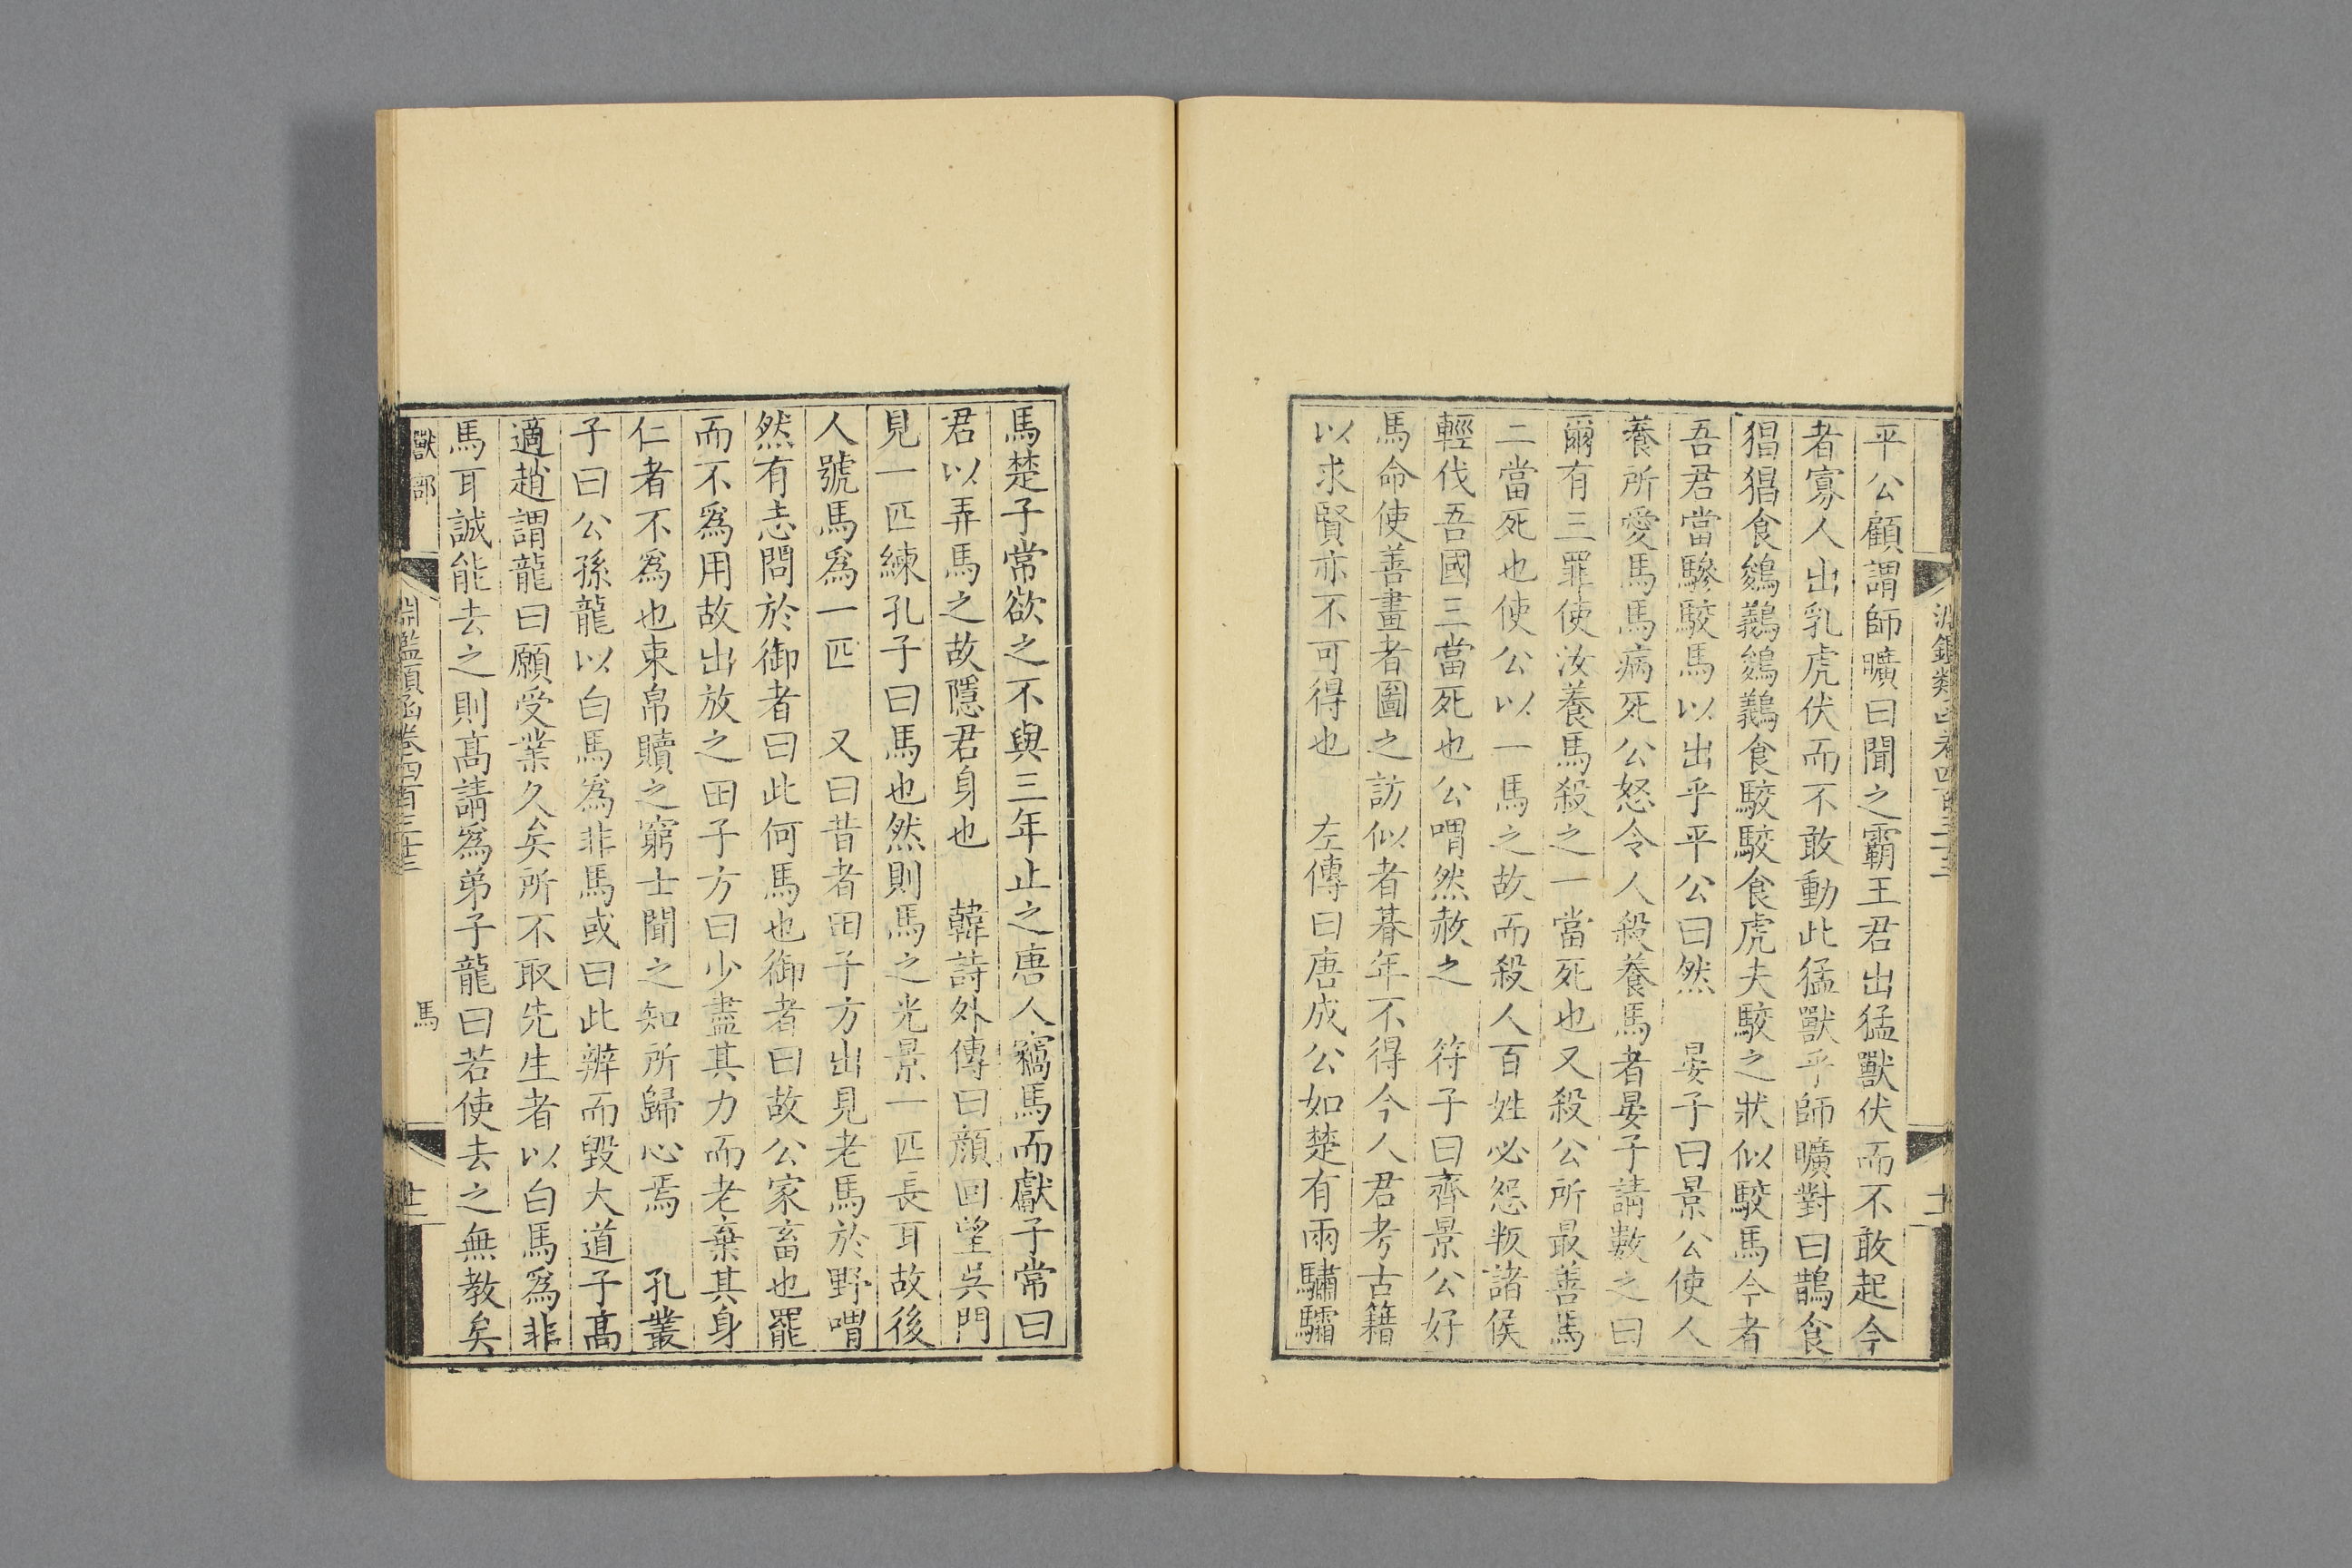 平公顧謂師曠曰聞之霸王君出猛獸伏而不敢起今
者寡人出乳虎伏而不敢動此猛獸乎師曠對曰鵲食
猖猖食鵕鸃鵕鸃食駮駮食虎夫駮之狀似駮馬今者
吾君當驂駮馬以出乎平公曰然 晏子曰景公使人
養所愛馬馬病死公怒令人殺養馬者晏子請數之曰
爾有三罪使汝養馬殺之一當死也又殺公所最善馬
二當死也使公以一馬之故而殺人百姓必怨叛諸侯
輕伐吾國三當死也公喟然赦之 符子曰齊景公好
馬命使善畫者圖之訪似者朞年不得今人君考古籍
以求賢亦不可得也 左傳曰唐成公如楚有兩驌驦
馬楚子常欲之不與三年止之唐人竊馬而獻子常曰
君以弄馬之故隱君身也 韓詩外傳曰顔回望吳門
見一匹練孔子曰馬也然則馬之光景一匹長耳故後
人號馬爲一匹 又曰昔者田子方出見老馬於野喟
然有志問於御者曰此何馬也御者曰故公家畜也罷
而不爲用故出放之田子方曰少盡其力而老棄其身
仁者不爲也束帛贖之窮士聞之知所歸心焉 孔叢
子曰公孫龍以白馬爲非馬或曰此辨而毀大道子高
適趙謂龍曰願受業久矣所不取先生者以白馬爲非
馬耳誠能去之則高請爲弟子龍曰若使去之無教矣
獸部 淵鑑類函卷四百三十三 馬